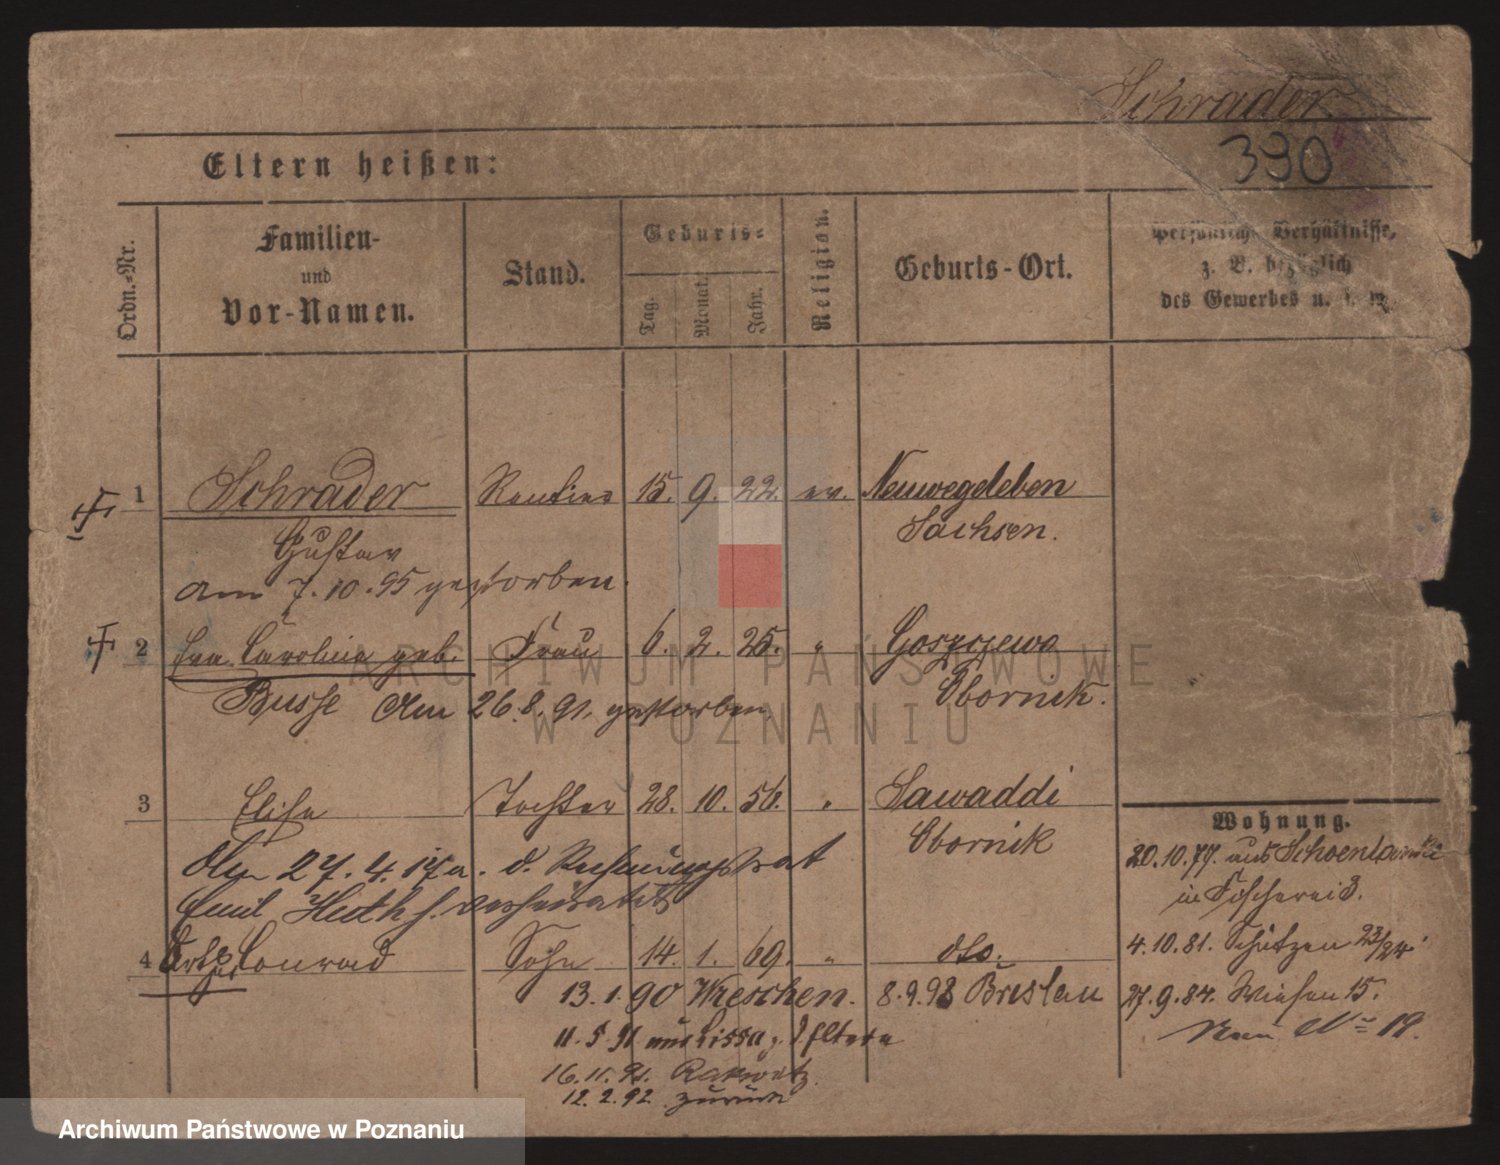 Schrader
390
Eltern heißen:
Ordn.-Nr.
Familien-
und
Vor-Namen.
Stand.
Geburts-
Tag.
Monat.
Jahr.
Religion.
Geburts-Ort.
Persönliche Verhältnisse,
z. B. bezüglich
des Gewerbes u. s. w.
1 Schrader Rentier 15. 9. 22. ev. Neuwegeleben
Sachsen.
Gustav
am 7.10.95 gestorben.
2 Carolina geb. Frau 6. 2. 25. " Goszczewo
Busse am 26.8.91. gestorben Obornik.
3 Elise Tochter 28. 10. 56. " Sawaddi
Obornik
Am 27.4. d. Rechnungsrat
Emil verheiratet
4 Conrad Sohn 14. 1. 69. " dto.
13.1.90 Wreschen. 8.9.98 Breslau
11.5.91 aus Lissa z. Eltern
16.11.91. Rakwitz
12.2.92 zurück
Wohnung.
20.10.77. aus Schoenlanke
in Fischerei 3.
4.10.81. Schützen 23/24
27.9.84. Wiesen 15.
Neu № 19.
ARCHIWUM PAŃSTWOWE
W POZNANIU
Archiwum Państwowe w Poznaniu